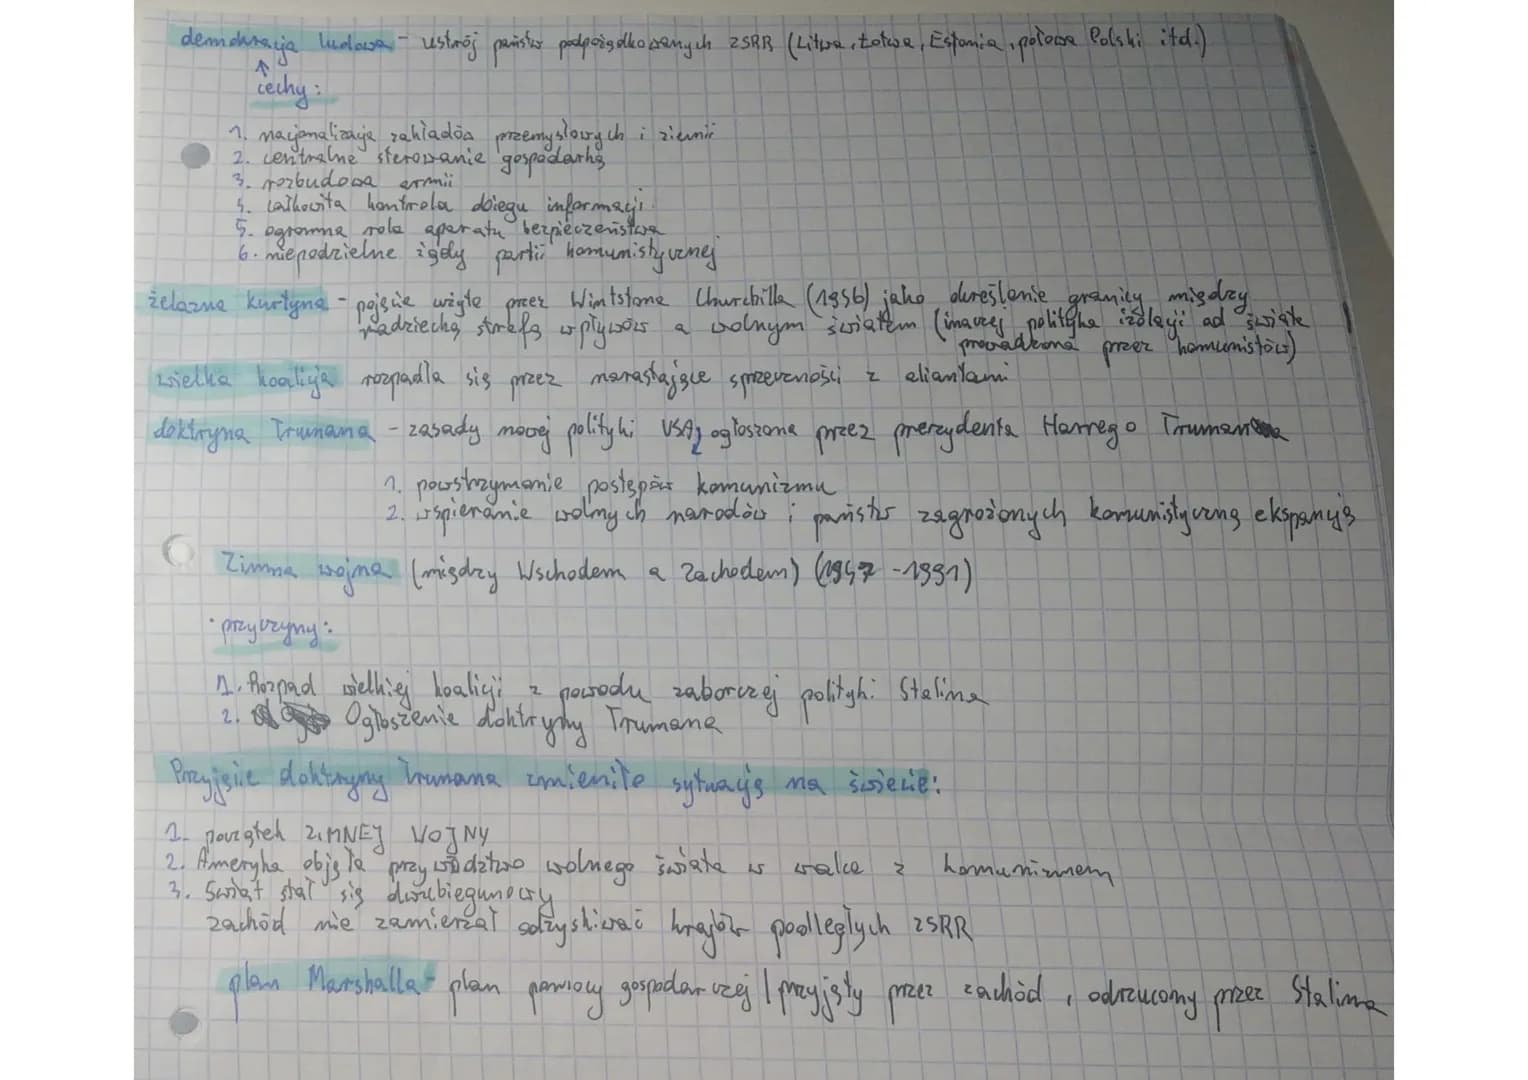 demokracja ludowa - ustrój państw podporządkowanych ZSRR (Litwa, Łotwa, Estonia, połowa Polski itd.)
cechy:
1. nacjonalizacja zakładów przemysłowych i ziemii
2. centralne sterowanie gospodarką
3. rozbudowa armii
4. całkowita kontrola obiegu informacji
5. ogromna rola aparatu bezpieczeństwa
6. niepodzielne rządy partii komunistycznej
żelazna kurtyna - pojęcie użyte przez Wintstona Churchilla (1946) jako określenie granicy między
radziecką strefą wpływów a wolnym światem (inaczej polityka izolacji od świata
prowadzona przez komunistów)
wielka koalicja rozpadla się przez narastające sprzeczności z aliantami
doktryna Trumana - zasady nowej polityki USA, ogłoszona przez prezydenta Harrego Trumana
1. powstrzymanie postępów komunizmu
2. wspieranie wolnych narodów i państw zagrożonych komunistyczną ekspansją
Zimna wojna (między Wschodem a Zachodem) (1947 - 1991)
• przyczyny:
1. Rozpad wielkiej koalicji z powodu zaborczej polityki Stalina
2. Ogłoszenie doktryny Trumana
Przyjęcie doktryny Trumana zmieniło sytuację na świecie:
1. początek ZIMNEJ WOJNY
2. Ameryka objęła przywództwo wolnego świata w walce z komunizmem
3. Świat stał się dwubiegunowy
zachód nie zamierzał odzyskiwać krajów podległych ZSRR
plan Marshalla - plan pomocy gospodarczej | przyjęty przez zachód, odrzucony przez Stalina